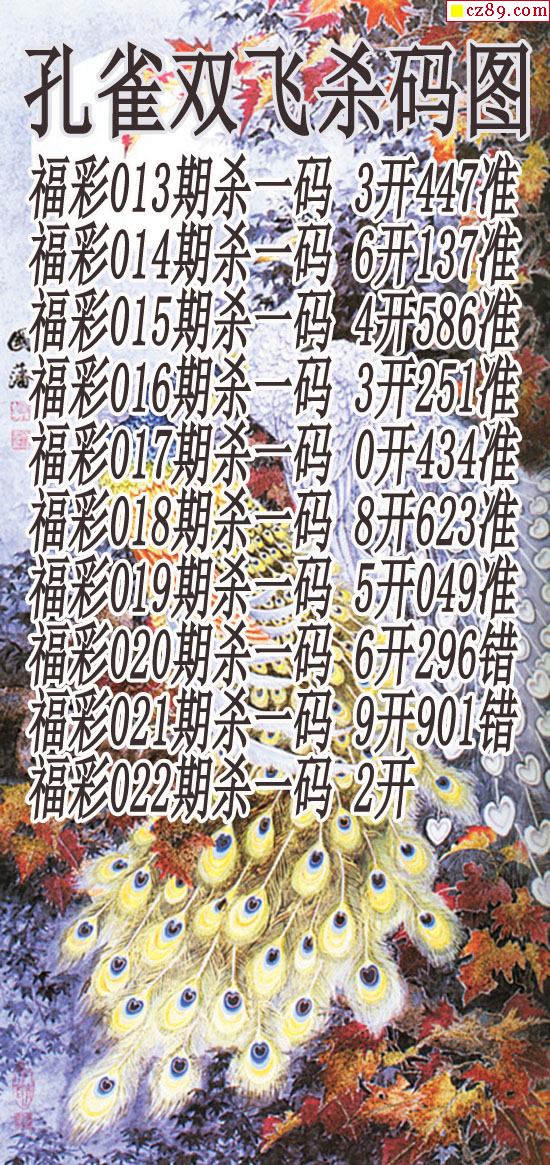 cz89.com
孔雀双飞杀码图
福彩013期杀一码 3开447准
福彩014期杀一码 6开137准
福彩015期杀一码 4开586准
福彩016期杀一码 3开251准
福彩017期杀一码 0开434准
福彩018期杀一码 8开623准
福彩019期杀一码 5开049准
福彩020期杀一码 6开296错
福彩021期杀一码 9开901错
福彩022期杀一码 2开